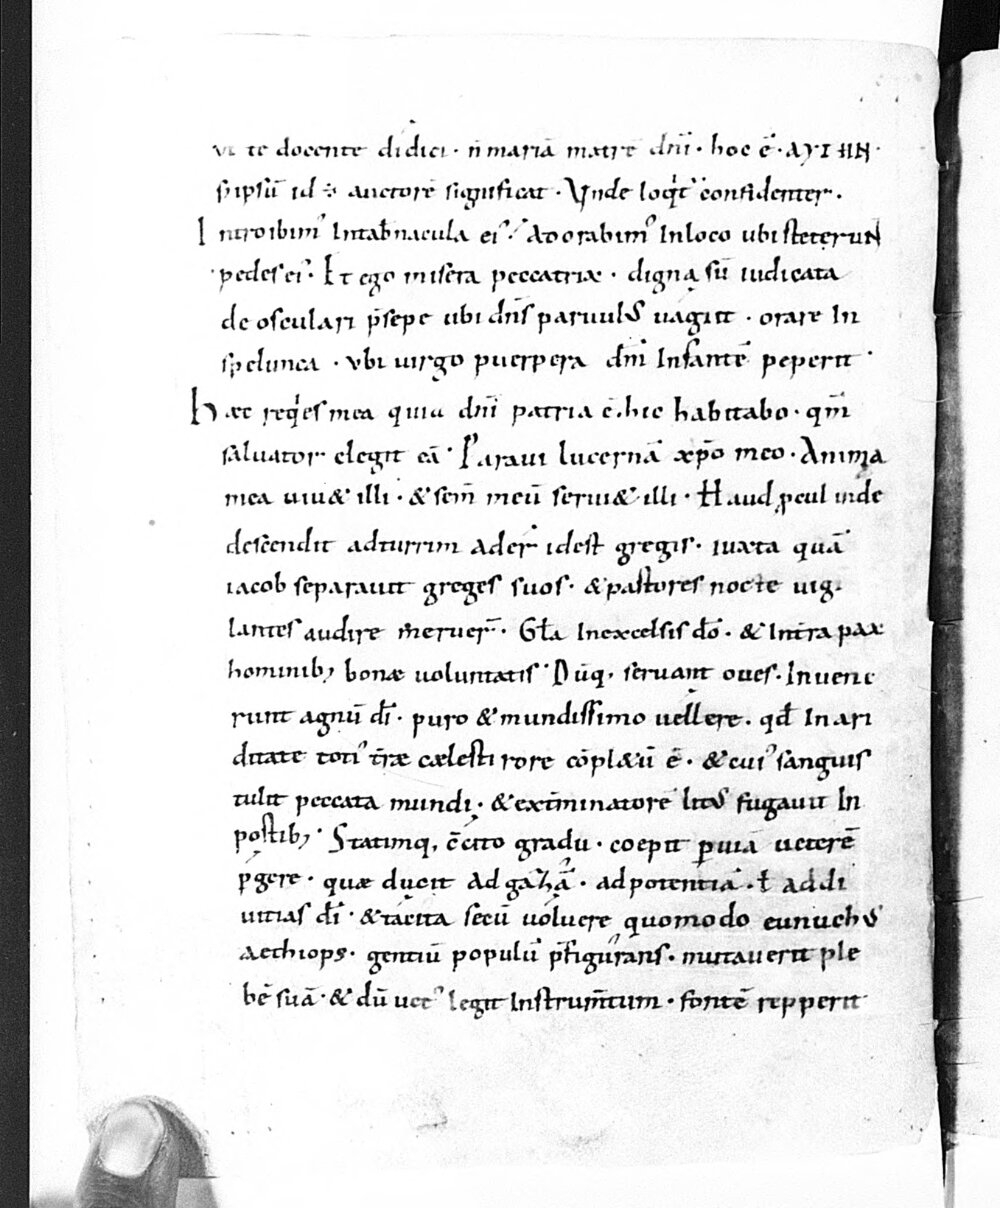 ut te docente didici · n̄ mariā matrē dn̄i · hoc ē · AYTHN ·
s; ipsū id ÷ auctorē significat · Vnde loq̇t᷑ confidenter ·
Introibim᷒ Intab̄nacula ei᷒ ·́ Adorabim᷒ Inloco ubi steterun
pedes ei᷒ · Et ego misera peccatrix · digna sū iudicata
deosculari p̄sepe ubi dn̄s paruulus uagiit · orare In
spelunca · ubi uirgo puerpera dn̄m Infantē peperit ·
Hæc req̇es mea quia dn̄i patria ē · hic habitabo · qm̄
saluator elegit eā · Paraui lucernā xp̄o meo · Anima
mea uiu& illi · & sem̄ meū serui& illi · Haud ꝓcul inde
descendit adturrim ader idest gregis · iuxta quā
iacob separauit greges suos · & pastores nocte uig
lantes audire m̄eruer̄ · Gl̄a Inexcelsis dō · & Intrā pax
hominib; bonæ uoluntatis · Dūq; seruant oues · Inuene
runt agnū dī · puro & mundissimo uellere · qd̄ In ari
ditate toti᷒ tr̄æ cælesti rore cōpl&ū ē · & cui᷒ sanguis
tulit peccata mundi · & ext̄minatorē litus fugauit In
postib; · Statimq; c̄cito gradu · coepit ꝑuiā ueterē
ꝑgere · quæ ducit ad gazā · ad potentiā · ł addi
uitias dī · & tacita secū uoluere quomodo eunuchus
aethiops · gentiū populū p̄figurans · mutauerit ple
bē suā · & dū uet᷒ legit Instrum̄tum · fontē repperit